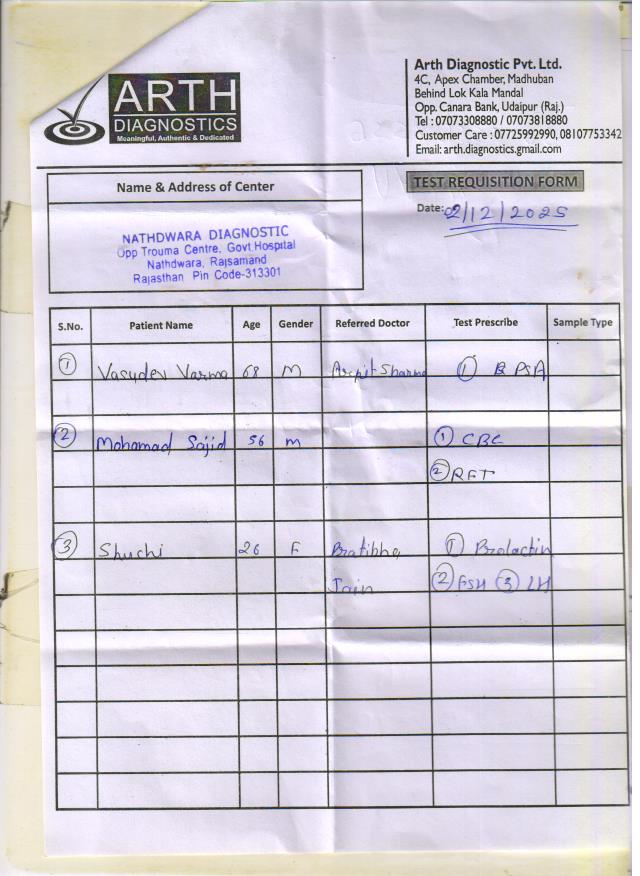 ARTH
DIAGNOSTICS
Meaningful, Authentic & Dedicated
Arth Diagnostic Pvt. Ltd.
4C, Apex Chamber, Madhuban
Behind Lok Kala Mandal
Opp. Canara Bank, Udaipur (Raj.)
Tel : 07073308880 / 07073818880
Customer Care : 07725992990, 08107753342
Email: arth.diagnostics.gmail.com
Name & Address of Center
NATHDWARA DIAGNOSTIC
Opp Trouma Centre, Govt Hospital
Nathdwara, Rajsamand
Rajasthan Pin Code-313301
TEST REQUISITION FORM
Date: 02/12/2025
S.No. Patient Name Age Gender Referred Doctor Test Prescribe Sample Type
1 Vasudev Varma 68 M Arpit Sharma 1 PSA
2 Mohamad Sajid 56 M 1 CBC
2 RFT
3 Shuchi 26 F Pratibha 1 Prolactin
Jain 2 FSH 3 LH